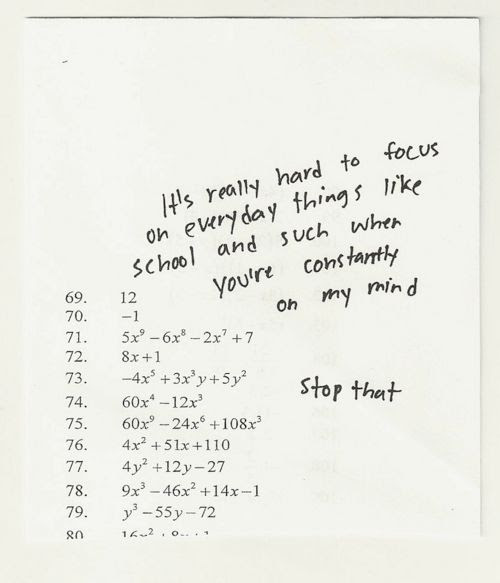 It's really hard to focus
on everyday things like
school and such when
you're constantly
on my mind
stop that
69. 12
70. −1
71. 5x⁹ − 6x⁸ − 2x⁷ + 7
72. 8x + 1
73. −4x⁵ + 3x³y + 5y²
74. 60x⁴ − 12x³
75. 60x⁹ − 24x⁶ + 108x³
76. 4x² + 51x + 110
77. 4y² + 12y − 27
78. 9x³ − 46x² + 14x − 1
79. y³ − 55y − 72
80